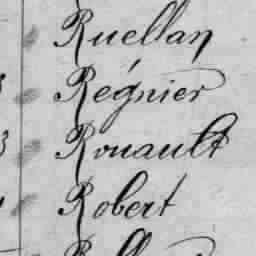 Ruellan
Régnier
Rouault
Robert